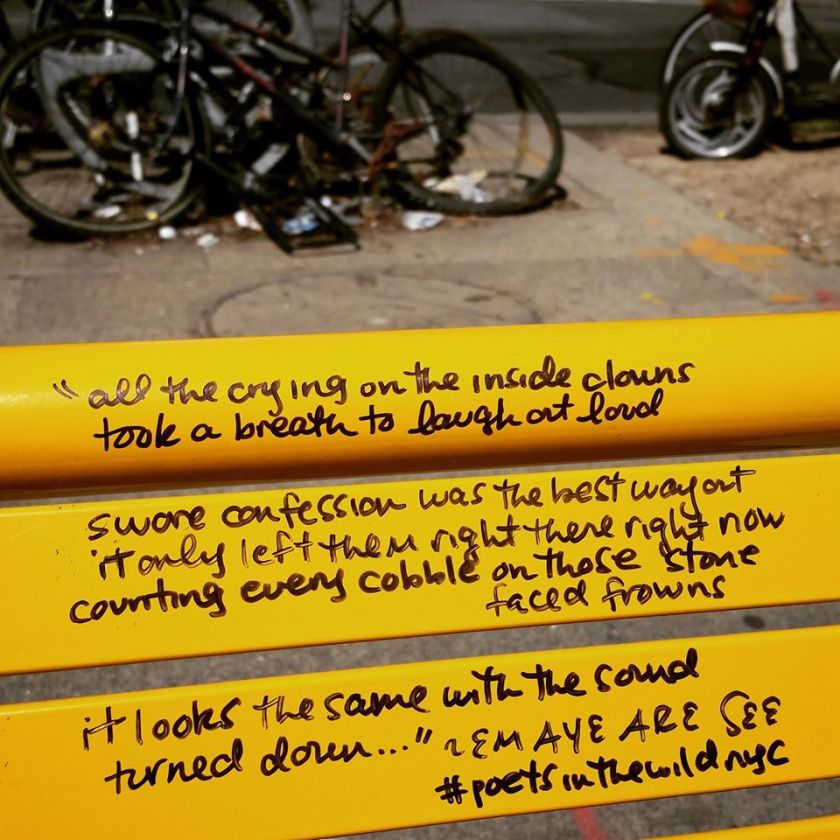 "all the crying on the inside clowns
took a breath to laugh out loud
swore confession was the best way out
it only left them right there right now
counting every cobble on those stone
faced frowns
it looks the same with the sound
turned down..." ~ EM AYE ARE SEE
#poetsinthewildnyc